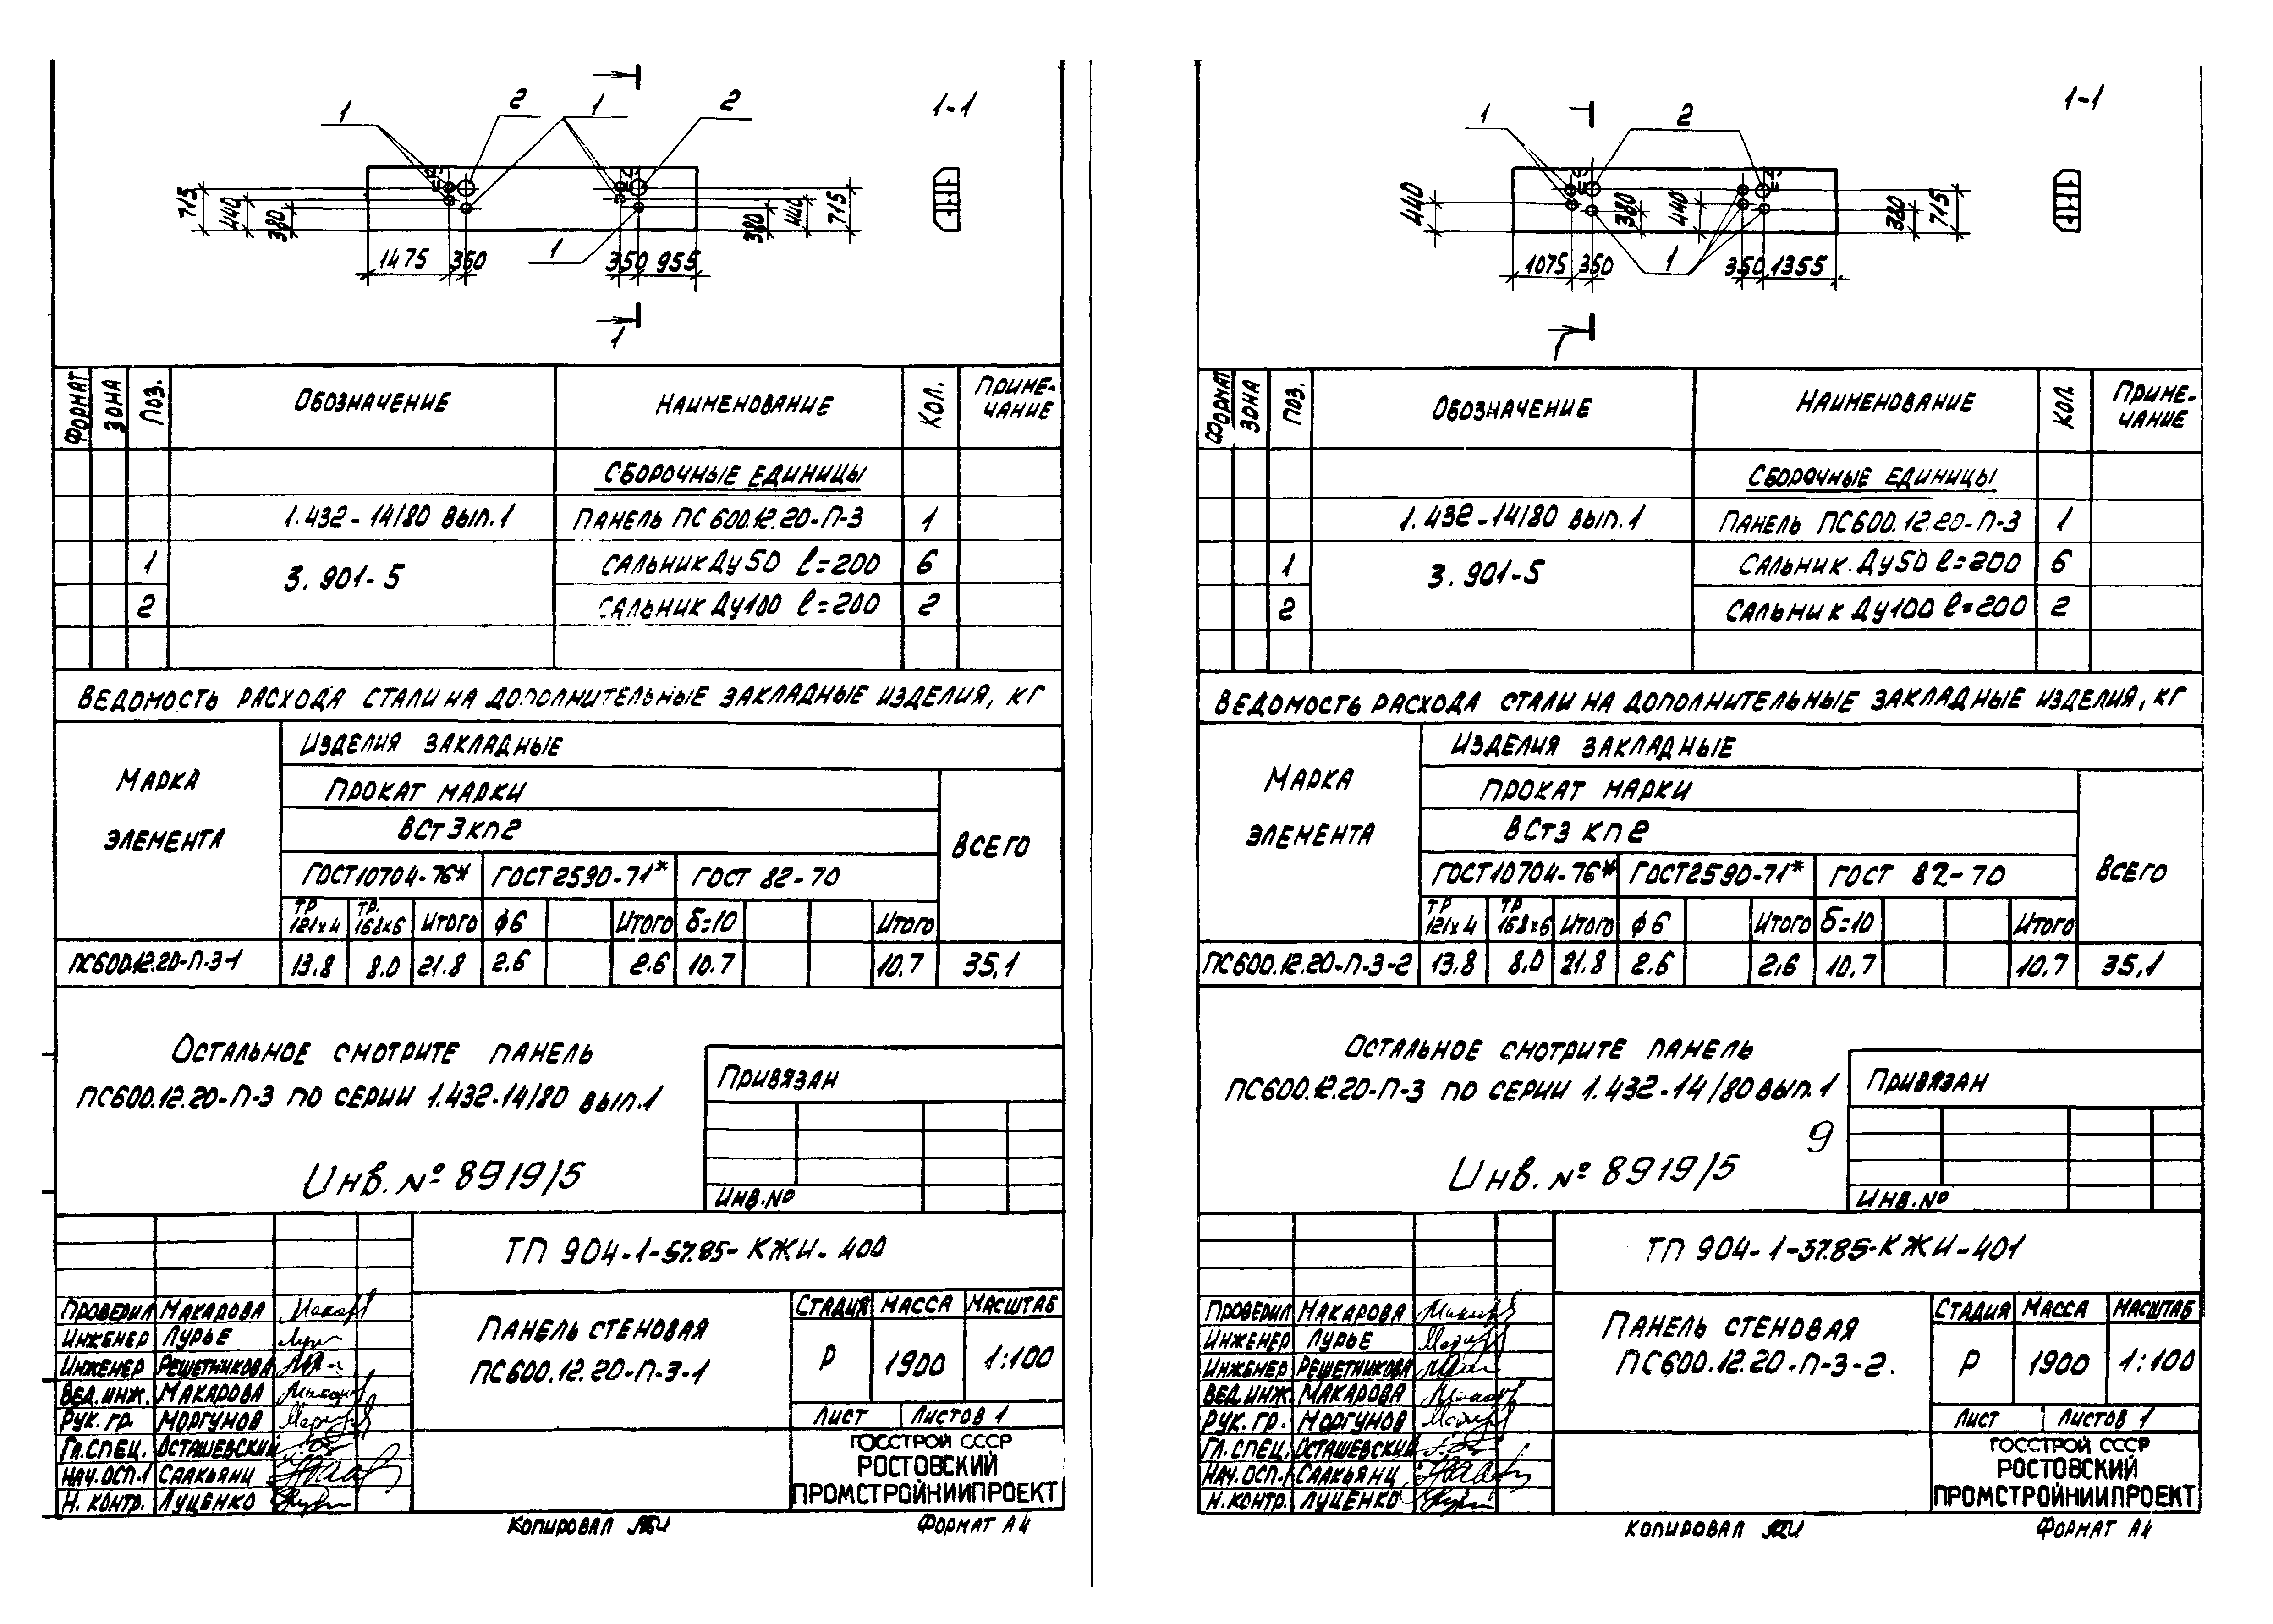 1 2 1 2 1-1
715 440 380 380 440 715
1
1475 350 350 955
1
ФОРМАТ ЗОНА ПОЗ. ОБОЗНАЧЕНИЕ НАИМЕНОВАНИЕ КОЛ. ПРИМЕ-
ЧАНИЕ
СБОРОЧНЫЕ ЕДИНИЦЫ
1.432-14/80 ВЫП.1 ПАНЕЛЬ ПС600.12.20-П-3 1
1 3.901-5 САЛЬНИК ДУ50 ℓ=200 6
2 САЛЬНИК ДУ100 ℓ=200 2
ВЕДОМОСТЬ РАСХОДА СТАЛИ НА ДОПОЛНИТЕЛЬНЫЕ ЗАКЛАДНЫЕ ИЗДЕЛИЯ, КГ
МАРКА
ЭЛЕМЕНТА
ИЗДЕЛИЯ ЗАКЛАДНЫЕ
ПРОКАТ МАРКИ
ВСт3кп2
ВСЕГО
ГОСТ10704-76* ГОСТ2590-71* ГОСТ 82-70
ТР 121х4 ТР. 168х6 ИТОГО ϕ6 ИТОГО δ=10 ИТОГО
ПС600.12.20-П-3-1 13.8 8.0 21.8 2.6 2.6 10.7 10.7 35,1
ОСТАЛЬНОЕ СМОТРИТЕ ПАНЕЛЬ
ПС600.12.20-П-3 ПО СЕРИИ 1.432-14/80 ВЫП.1
ПРИВЯЗАН
Инв. № 8919/5
ИНВ.№
ТП 904-1-57.85-КЖИ-400
ПРОВЕРИЛ МАКАРОВА
ИНЖЕНЕР ЛУРЬЕ
ИНЖЕНЕР РЕШЕТНИКОВА
ВЕД.ИНЖ. МАКАРОВА
РУК. ГР. МОРГУНОВ
ГЛ.СПЕЦ. ОСТАШЕВСКИЙ
НАЧ.ОСП.1 СААКЬЯНЦ
Н. КОНТР. ЛУЦЕНКО
ПАНЕЛЬ СТЕНОВАЯ
ПС600.12.20-П-3-1
СТАДИЯ МАССА МАСШТАБ
Р 1900 1:100
ЛИСТ ЛИСТОВ 1
ГОССТРОЙ СССР
РОСТОВСКИЙ
ПРОМСТРОЙНИИПРОЕКТ
КОПИРОВАЛ ФОРМАТ А4
1 2 1-1
440 380 440 380 715
1075 350 1 350 1355
1
ФОРМАТ ЗОНА ПОЗ. ОБОЗНАЧЕНИЕ НАИМЕНОВАНИЕ КОЛ. ПРИМЕ-
ЧАНИЕ
СБОРОЧНЫЕ ЕДИНИЦЫ
1.432-14/80 ВЫП.1 ПАНЕЛЬ ПС600.12.20-П-3 1
1 3.901-5 САЛЬНИК ДУ50 ℓ=200 6
2 САЛЬНИК ДУ100 ℓ=200 2
ВЕДОМОСТЬ РАСХОДА СТАЛИ НА ДОПОЛНИТЕЛЬНЫЕ ЗАКЛАДНЫЕ ИЗДЕЛИЯ, КГ
МАРКА
ЭЛЕМЕНТА
ИЗДЕЛИЯ ЗАКЛАДНЫЕ
ПРОКАТ МАРКИ
ВСт3 кп2
ВСЕГО
ГОСТ10704-76* ГОСТ2590-71* ГОСТ 82-70
ТР 121х4 ТР 168х6 ИТОГО ϕ6 ИТОГО δ=10 ИТОГО
ПС600.12.20-П-3-2 13.8 8.0 21.8 2.6 2.6 10,7 10,7 35,1
ОСТАЛЬНОЕ СМОТРИТЕ ПАНЕЛЬ
ПС600.12.20-П-3 ПО СЕРИИ 1.432-14/80 ВЫП.1
ПРИВЯЗАН
9
Инв. № 8919/5
ИНВ.№
ТП 904-1-57.85-КЖИ-401
ПРОВЕРИЛ МАКАРОВА
ИНЖЕНЕР ЛУРЬЕ
ИНЖЕНЕР РЕШЕТНИКОВА
ВЕД.ИНЖ. МАКАРОВА
РУК. ГР. МОРГУНОВ
ГЛ.СПЕЦ. ОСТАШЕВСКИЙ
НАЧ.ОСП.1 СААКЬЯНЦ
Н.КОНТР. ЛУЦЕНКО
ПАНЕЛЬ СТЕНОВАЯ
ПС600.12.20-П-3-2.
СТАДИЯ МАССА МАСШТАБ
Р 1900 1:100
ЛИСТ ЛИСТОВ 1
ГОССТРОЙ СССР
РОСТОВСКИЙ
ПРОМСТРОЙНИИПРОЕКТ
КОПИРОВАЛ ФОРМАТ А4